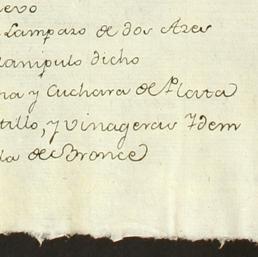 uevo
Lamparo de dos Azes
Manipulo dicho
na y Cuchara de Plata
tillo, y Vinageras Ydem
la de Bronce